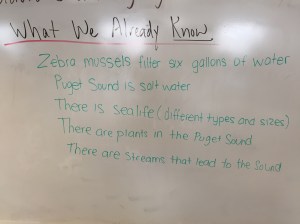 What We Already Know
Zebra mussels filter six gallons of water
Puget Sound is salt water
There is sealife (different types and sizes)
There are plants in the Puget Sound
There are streams that lead to the Sound